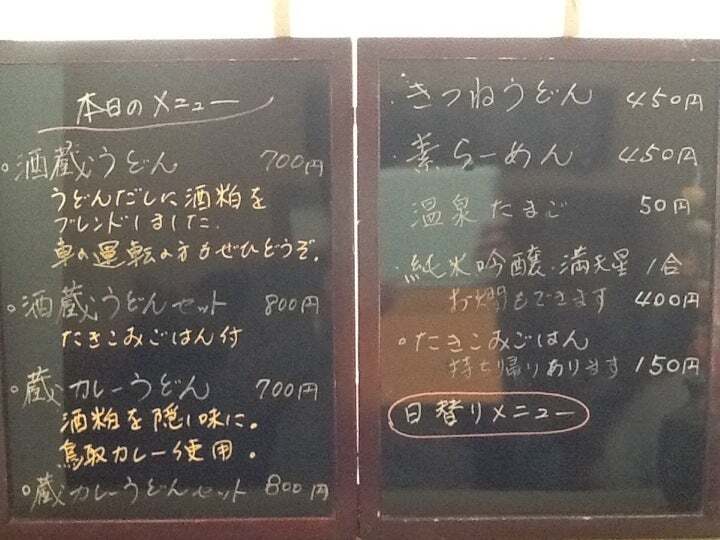 本日のメニュー
。酒蔵うどん 700円
うどんだしに酒粕を
ブレンドしました。
車の運転の方もぜひどうぞ。
。酒蔵うどんセット 800円
たきこみごはん付
。蔵カレーうどん 700円
酒粕を隠し味に。
鳥取カレー使用。
。蔵カレーうどんセット 800円
・きつねうどん 450円
・素らーめん 450円
温泉たまご 50円
・純米吟醸・満天星 1合
お燗もできます 400円
。たきこみごはん
持ち帰りあります 150円
日替りメニュー